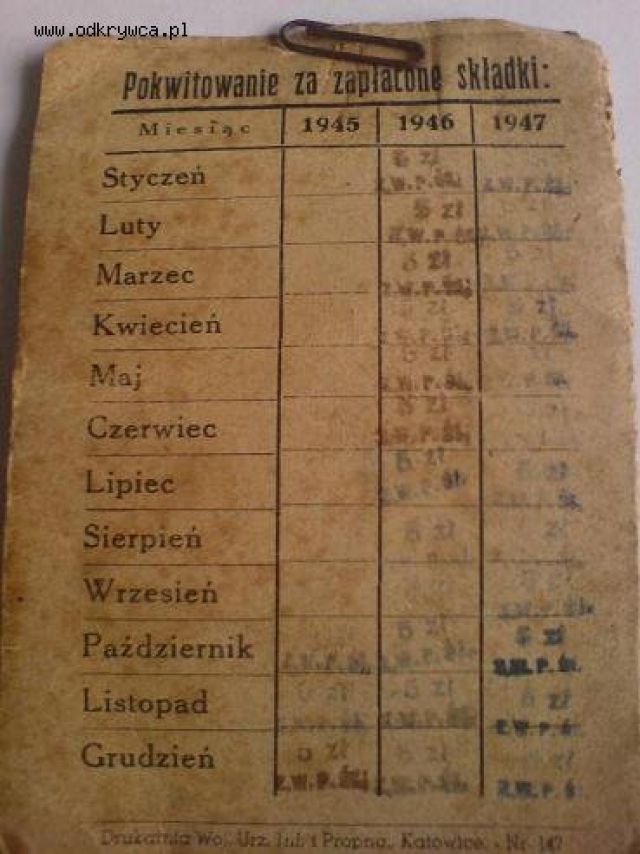 www.odkrywca.pl
Pokwitowanie za zapłacone składki:
Miesiąc 1945 1946 1947
Styczeń 5 zł Z.W.P.Śl. Z.W.P.Śl.
Luty 5 zł Z.W.P.Śl. zł Z.W.P.Śl.
Marzec 5 zł Z.W.P.Śl. 5 zł Z.W.P.Śl.
Kwiecień 5 zł Z.W.P.Śl. 5 zł Z.W.P.Śl.
Maj 5 zł Z.W.P.Śl. zł Z.W.P.Śl.
Czerwiec 5 zł Z.W.P.Śl.
Lipiec 5 zł Z.W.P.Śl. 5 zł Z.W.P.Śl.
Sierpień 5 zł zł
Wrzesień 5 zł Z.W.P.Śl.
Październik Z.W.P.Śl. 5 zł Z.W.P.Śl. 5 zł Z.W.P.Śl.
Listopad Z.W.P.Śl. 5 zł Z.W.P.Śl. 5 zł Z.W.P.Śl.
Grudzień 5 zł Z.W.P.Śl. 5 zł Z.W.P.Śl. zł Z.W.P.Śl.
Drukarnia Woj. Urz. Inf. i Propag. Katowice. - Nr. 147